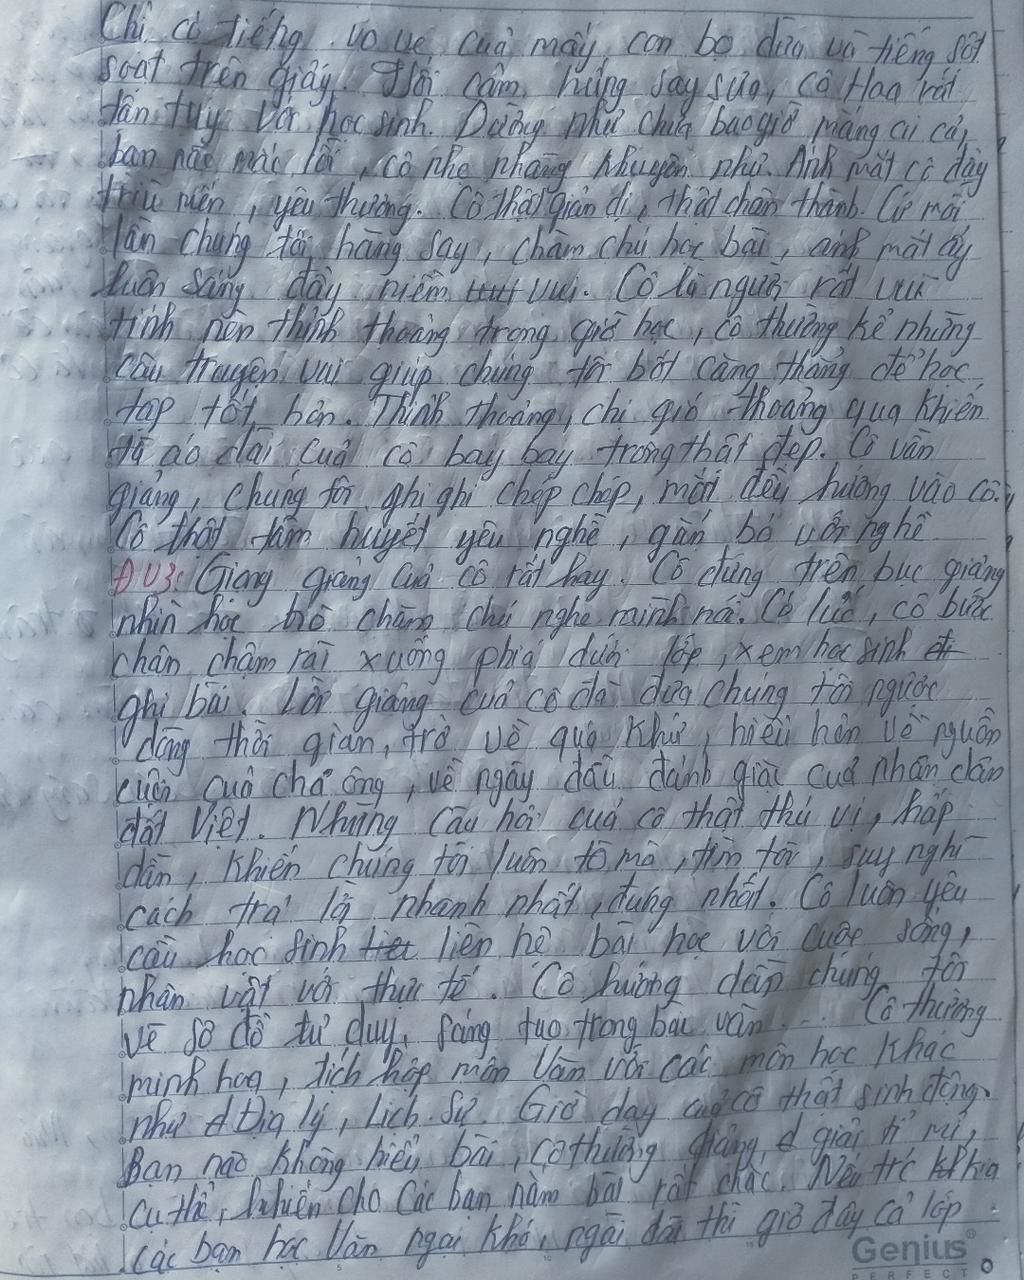 Chỉ có tiếng vo ve của mấy con bọ dừa và tiếng sột
soạt trên giấy. Với cảm hứng say sưa, cô Hoa rất
tận tụy với học sinh. Dường như chưa bao giờ mắng ai cả,
bạn nào mắc lỗi, cô nhẹ nhàng khuyên nhủ. Ánh mắt cô đầy
trìu mến, yêu thương. Cô thật giản dị, thật chân thành. Cứ mỗi
lần chúng tôi hăng say, chăm chú học bài, ánh mắt ấy
luôn sáng đầy niềm vui. Cô là người rất vui
tính nên thỉnh thoảng trong giờ học, cô thường kể những
câu truyện vui giúp chúng tôi bớt căng thẳng để học
tập tốt hơn. Thỉnh thoảng, chị gió thoảng qua khiến
tà áo dài của cô bay bay trông thật đẹp. Cô vẫn
giảng, chúng tôi ghi ghi chép chép, mắt đều hướng vào cô.
Cô thật tâm huyết yêu nghề, gắn bó với nghề
Giọng giảng của cô rất hay. Cô đứng trên bục giảng
nhìn học trò chăm chú nghe mình nói. Có lúc, cô bước
chân chậm rãi xuống phía dưới lớp, xem học sinh
ghi bài. Lời giảng của cô đã đưa chúng tôi ngược
dòng thời gian, trở về quá khứ, hiểu hơn về nguồn
cuội của cha ông, về ngày đầu đánh giặc của nhân dân
đất Việt. Những câu hỏi của cô thật thú vị, hấp
dẫn, khiến chúng tôi luôn tò mò, tìm tòi, suy nghĩ
cách trả lời nhanh nhất, đúng nhất. Cô luôn yêu
cầu học sinh liên hệ bài học với cuộc sống,
nhân vật với thực tế. Cô hướng dẫn chúng tôi
vẽ sơ đồ tư duy, sáng tạo trong bài văn... Cô thường
minh họa, tích hợp môn Văn với các môn học khác
như Địa lý, Lịch Sử. Giờ dạy của cô thật sinh động.
Bạn nào không hiểu bài, cô thường giảng giải tỉ mỉ,
cụ thể, khiến cho các bạn nắm bài rất chắc. Nếu trước kia
các bạn học Văn ngại khó, ngại dài thì giờ đây cả lớp
Genius
PERFECT